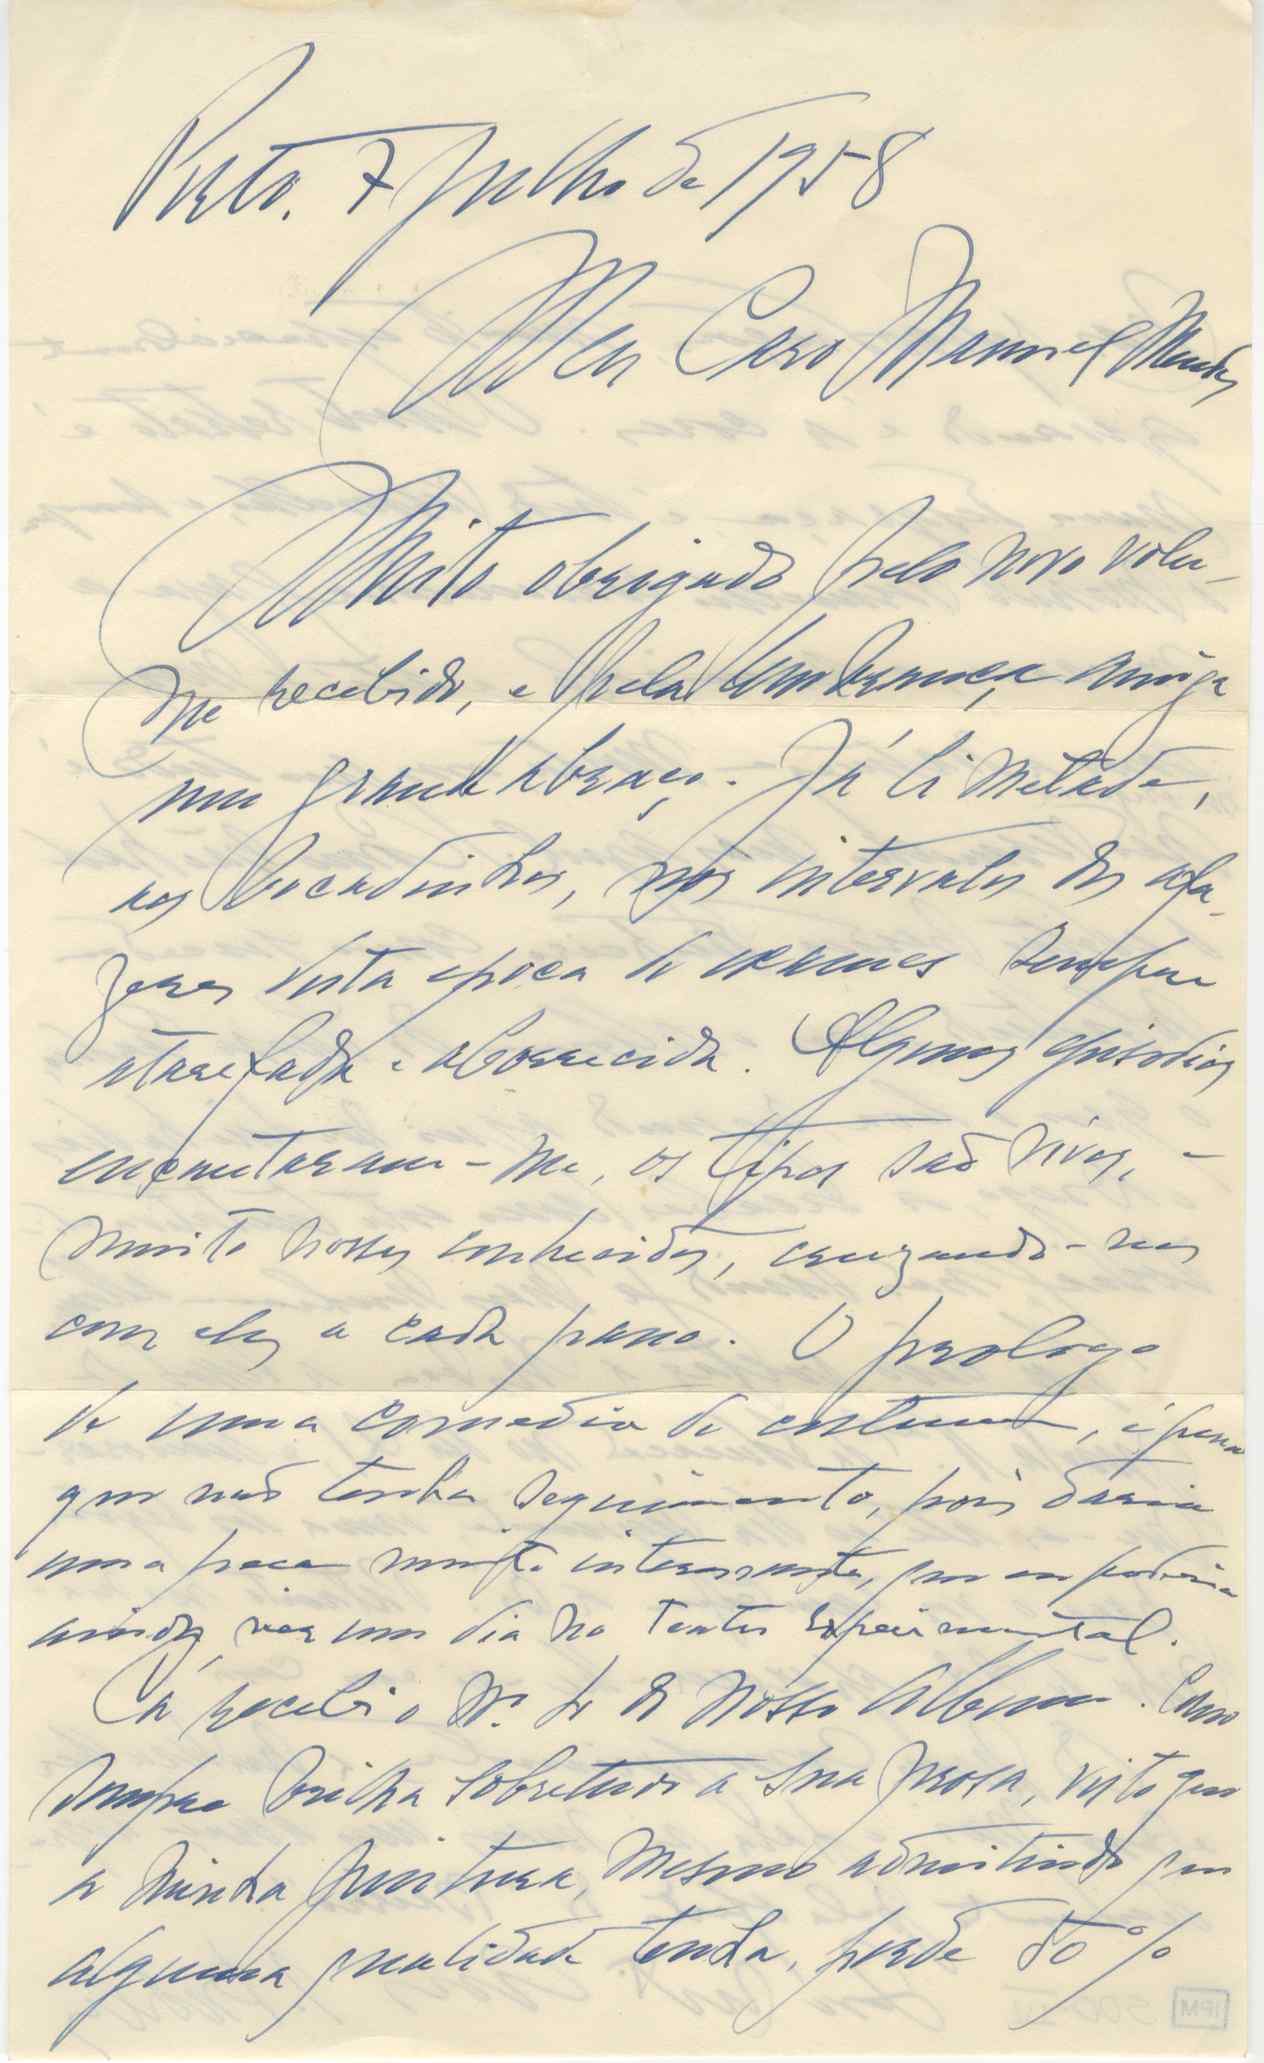 Porto, 7 Julho de 1958
Meu Caro Manuel Mendes
Muito obrigado pelo novo volu-
me recebido, e pela lembrança amiga
um grande abraço. Já li metade,
aos bocadinhos, nos intervalos dos afa-
zeres desta epoca de exames sempre
atarefada e aborrecida. Alguns episodios
encantaram-me, os tipos são vivos, e
muito nossos conhecidos, cruzando-nos
com eles a cada passo. O prologo
de uma comedia de costumes, é pena
que não tenha seguimento, pois daria
uma peça muito interessante, que eu poderia
ainda ver um dia no Teatro Experimental.
Cá recebi o Nº. do nosso Album. Como
sempre brilha sobretudo a sua prosa, visto que
a minha pintura, mesmo admitindo que
alguma qualidade tenha, perde 80%
IPM